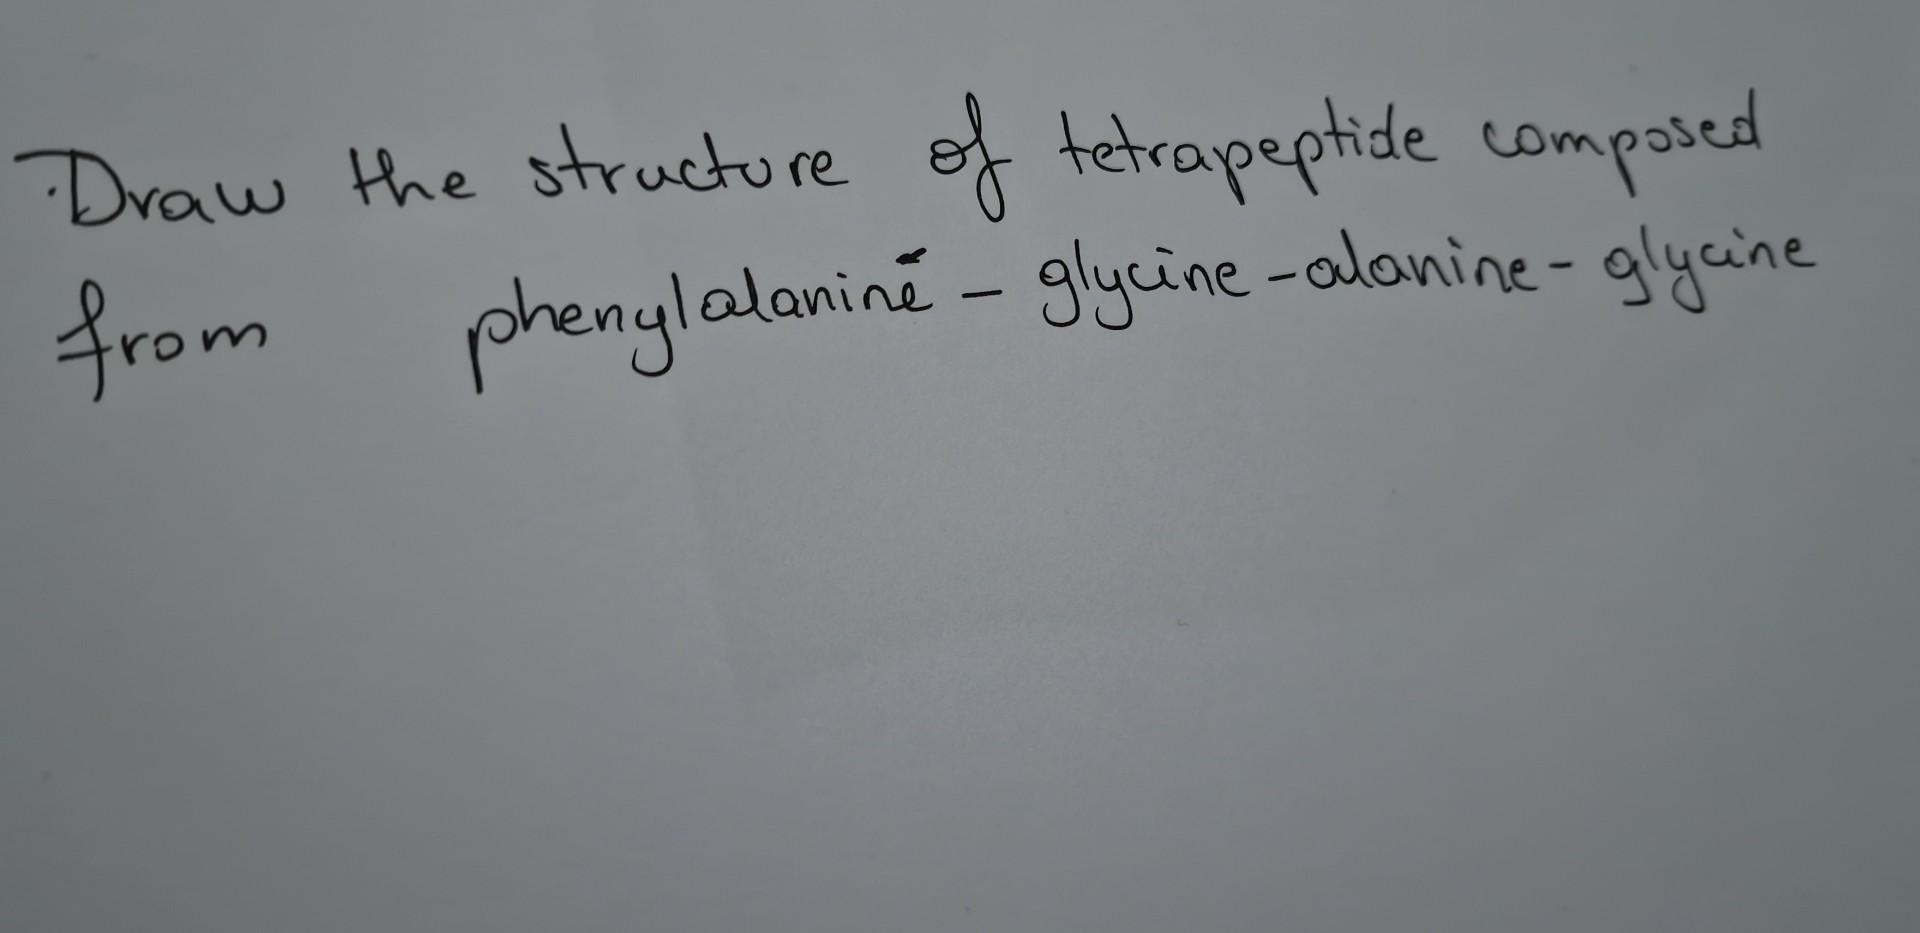 Draw the structure of tetrapeptide composed
from phenylalanine - glycine - alanine - glycine